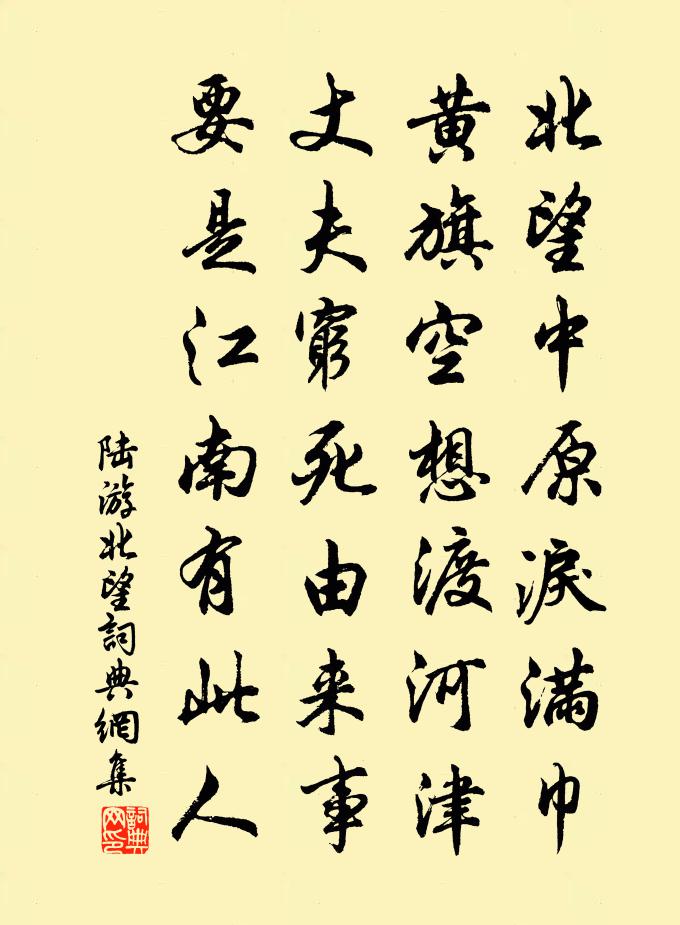 北望中原淚滿巾
黃旗空想渡河津
丈夫窮死由来事
要是江南有此人
陆游北望詞典網集
詞典网印